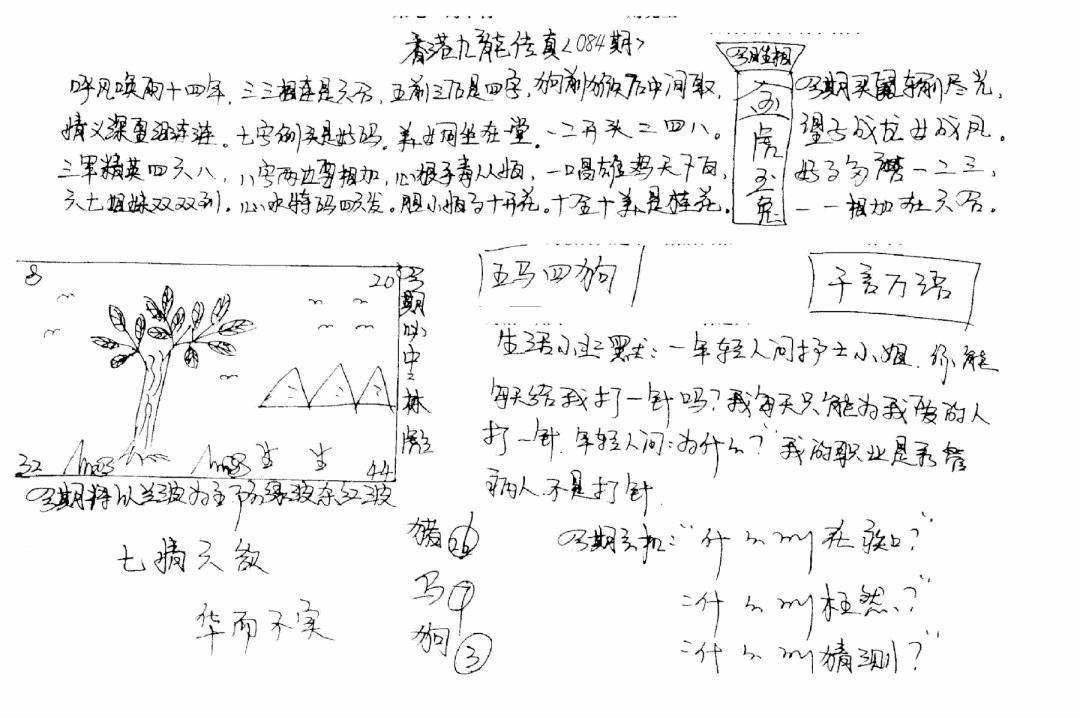 香港九龙传真<084期>
呼风唤雨十四年，三三相连是六合，五前三后是四字，狗前猴后中间取，
情义深重汨连涟。七字倒头是好码。美女同坐在堂。一二开头二四八。
三军精英四六八，八字两边要相加，心狠手毒从，一唱雄鸡天下白，
六七姐妹双双到。心水特码四发。胆小十开花。十全十美是桂花。
期买鼠输尽光，
望子成龙女成凤。
好事多磨一二三，
一一相加在六合。
虎
玉
兔
8
20
32
44
期必中林彪
五马四狗
千言万语
生活小幽默：一年轻人问护士小姐，你能
每天给我打一针吗？我每天只能为我爱的人
打一针，年轻人问：为什么？我的职业是看管
病人，不是打针
期将以兰波为主防绿波杂红波
七情六欲
华而不实
猪 26
马 7
狗 3
期玄机："什么叫在？"
"什么叫枉然？"
"什么叫猜测？"